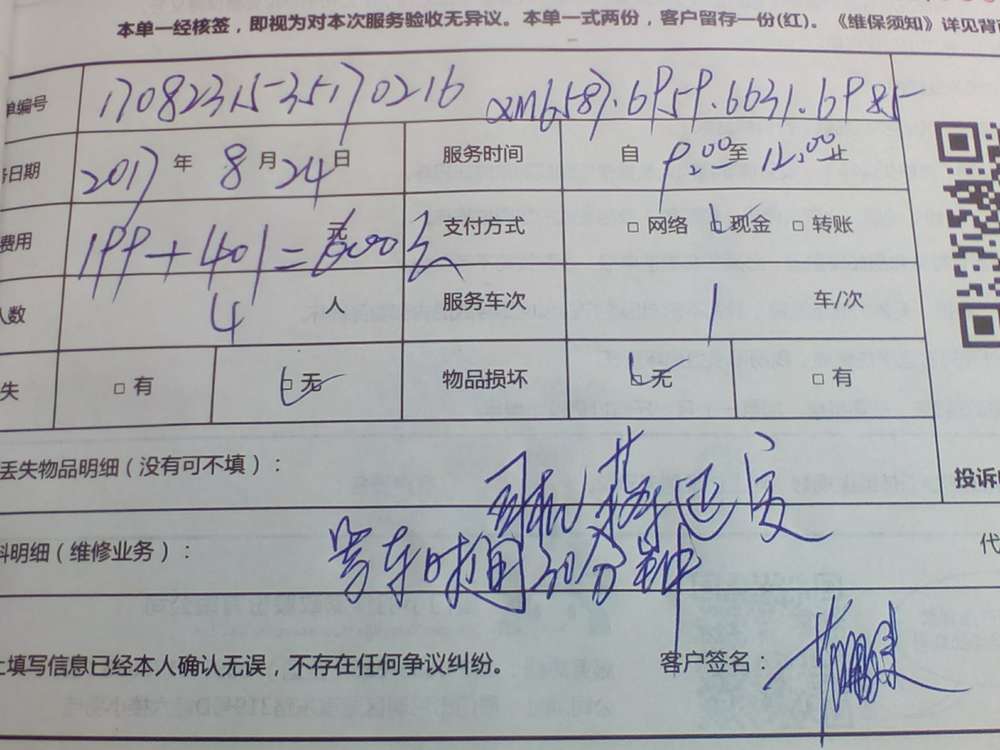 本单一经核签，即视为对本次服务验收无异议。本单一式两份，客户留存一份(红)。《维保须知》详见背
单编号 1708231535170216 XM6587.6959.6631.6985
日期 2017年 8月24日 服务时间 自 9:00至 12:00止
费用 199+401=600元 支付方式 □ 网络 □ 现金 □ 转账
人数 4 人 服务车次 1 车/次
失 □ 有 □ 无 物品损坏 □ 无 □ 有
丢失物品明细（没有可不填）：
投诉
料明细（维修业务）： 等车时间30分钟
代
上填写信息已经本人确认无误，不存在任何争议纠纷。 客户签名：